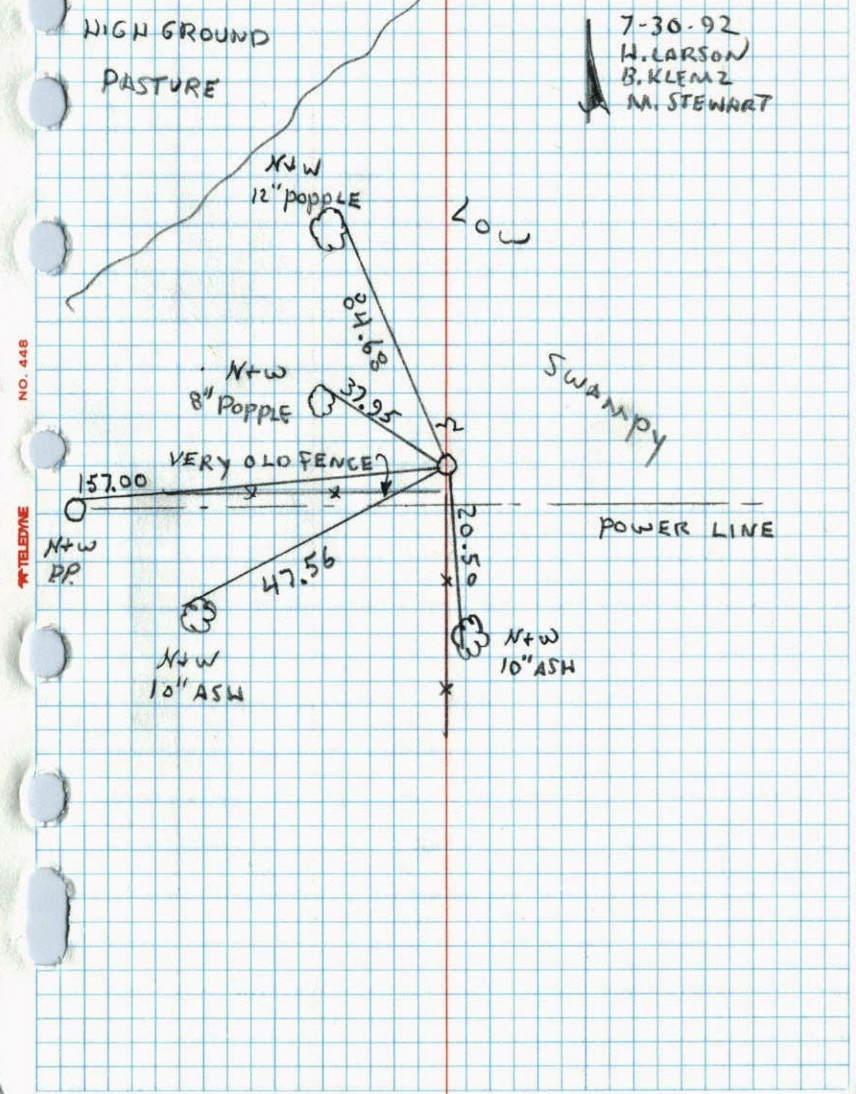 HIGH GROUND
PASTURE
7-30-92
H. LARSON
B. KLEMZ
M. STEWART
N+W
12" POPPLE
LOW
84.68
SWAMPY
N+W
8" POPPLE
37.95
VERY OLD FENCE
157.00
N+W
PP.
POWER LINE
20.50
47.56
N+W
10" ASH
N+W
10" ASH
NO. 448
TELEDYNE